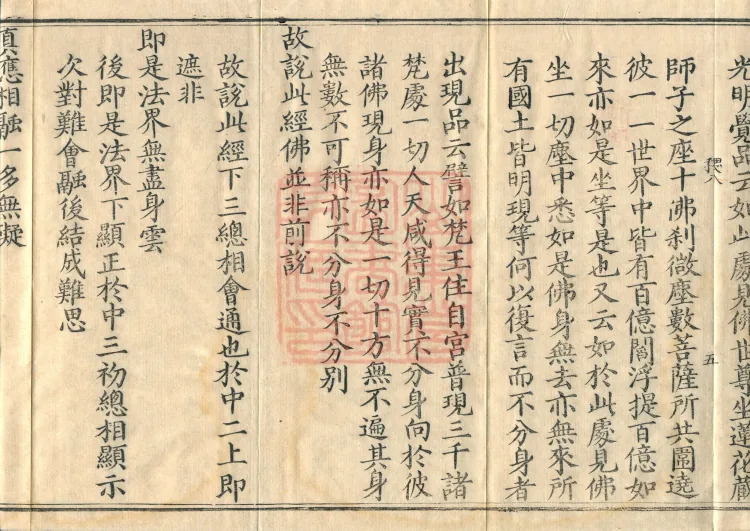 光明覺品云如此處見佛世尊坐蓮花藏
師子之座十佛刹微塵數菩薩所共圍遶
彼一一世界中皆有百億閻浮提百億如
來亦如是坐等是也又云如於此處見佛
坐一切塵中悉如是佛身無去亦無來所
有國土皆明現等何以復言而不分身者
五
出現品云譬如梵王住自宮普現三千諸
梵處一切人天咸得見實不分身向於彼
諸佛現身亦如是一切十方無不遍其身
無數不可稱亦不分身不分別
故說此經佛並非前說
故說此經下三總相會通也於中二上即
遮非
即是法界無盡身雲
後即是法界下顯正於中三初總相顯示
次對難會融後結成難思
真應相融一多無礙